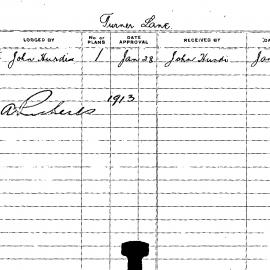 Turner Lane.
LODGED BY No. OF PLANS DATE APPROVAL RECEIVED BY DA
John Hurdis 1 Jan 28 John Hurdis Jan
1913